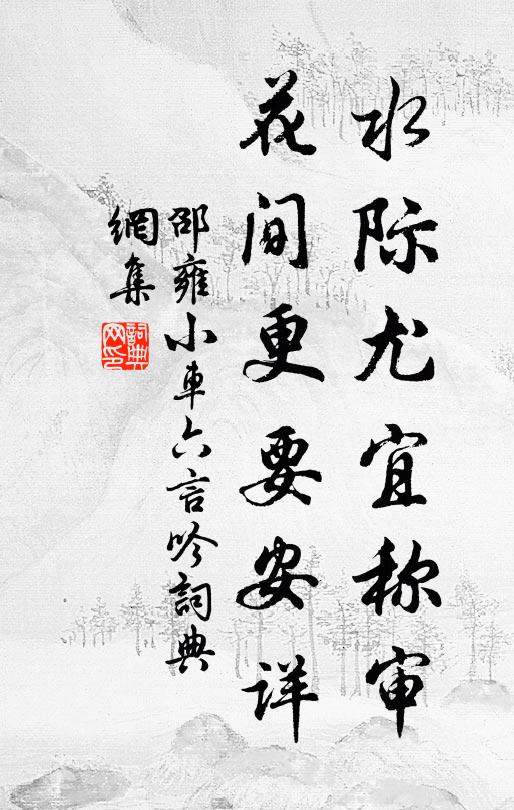 水际尤宜称审
花间更要安详
邵雍小車六言吟詞典
網集
詞典
网印